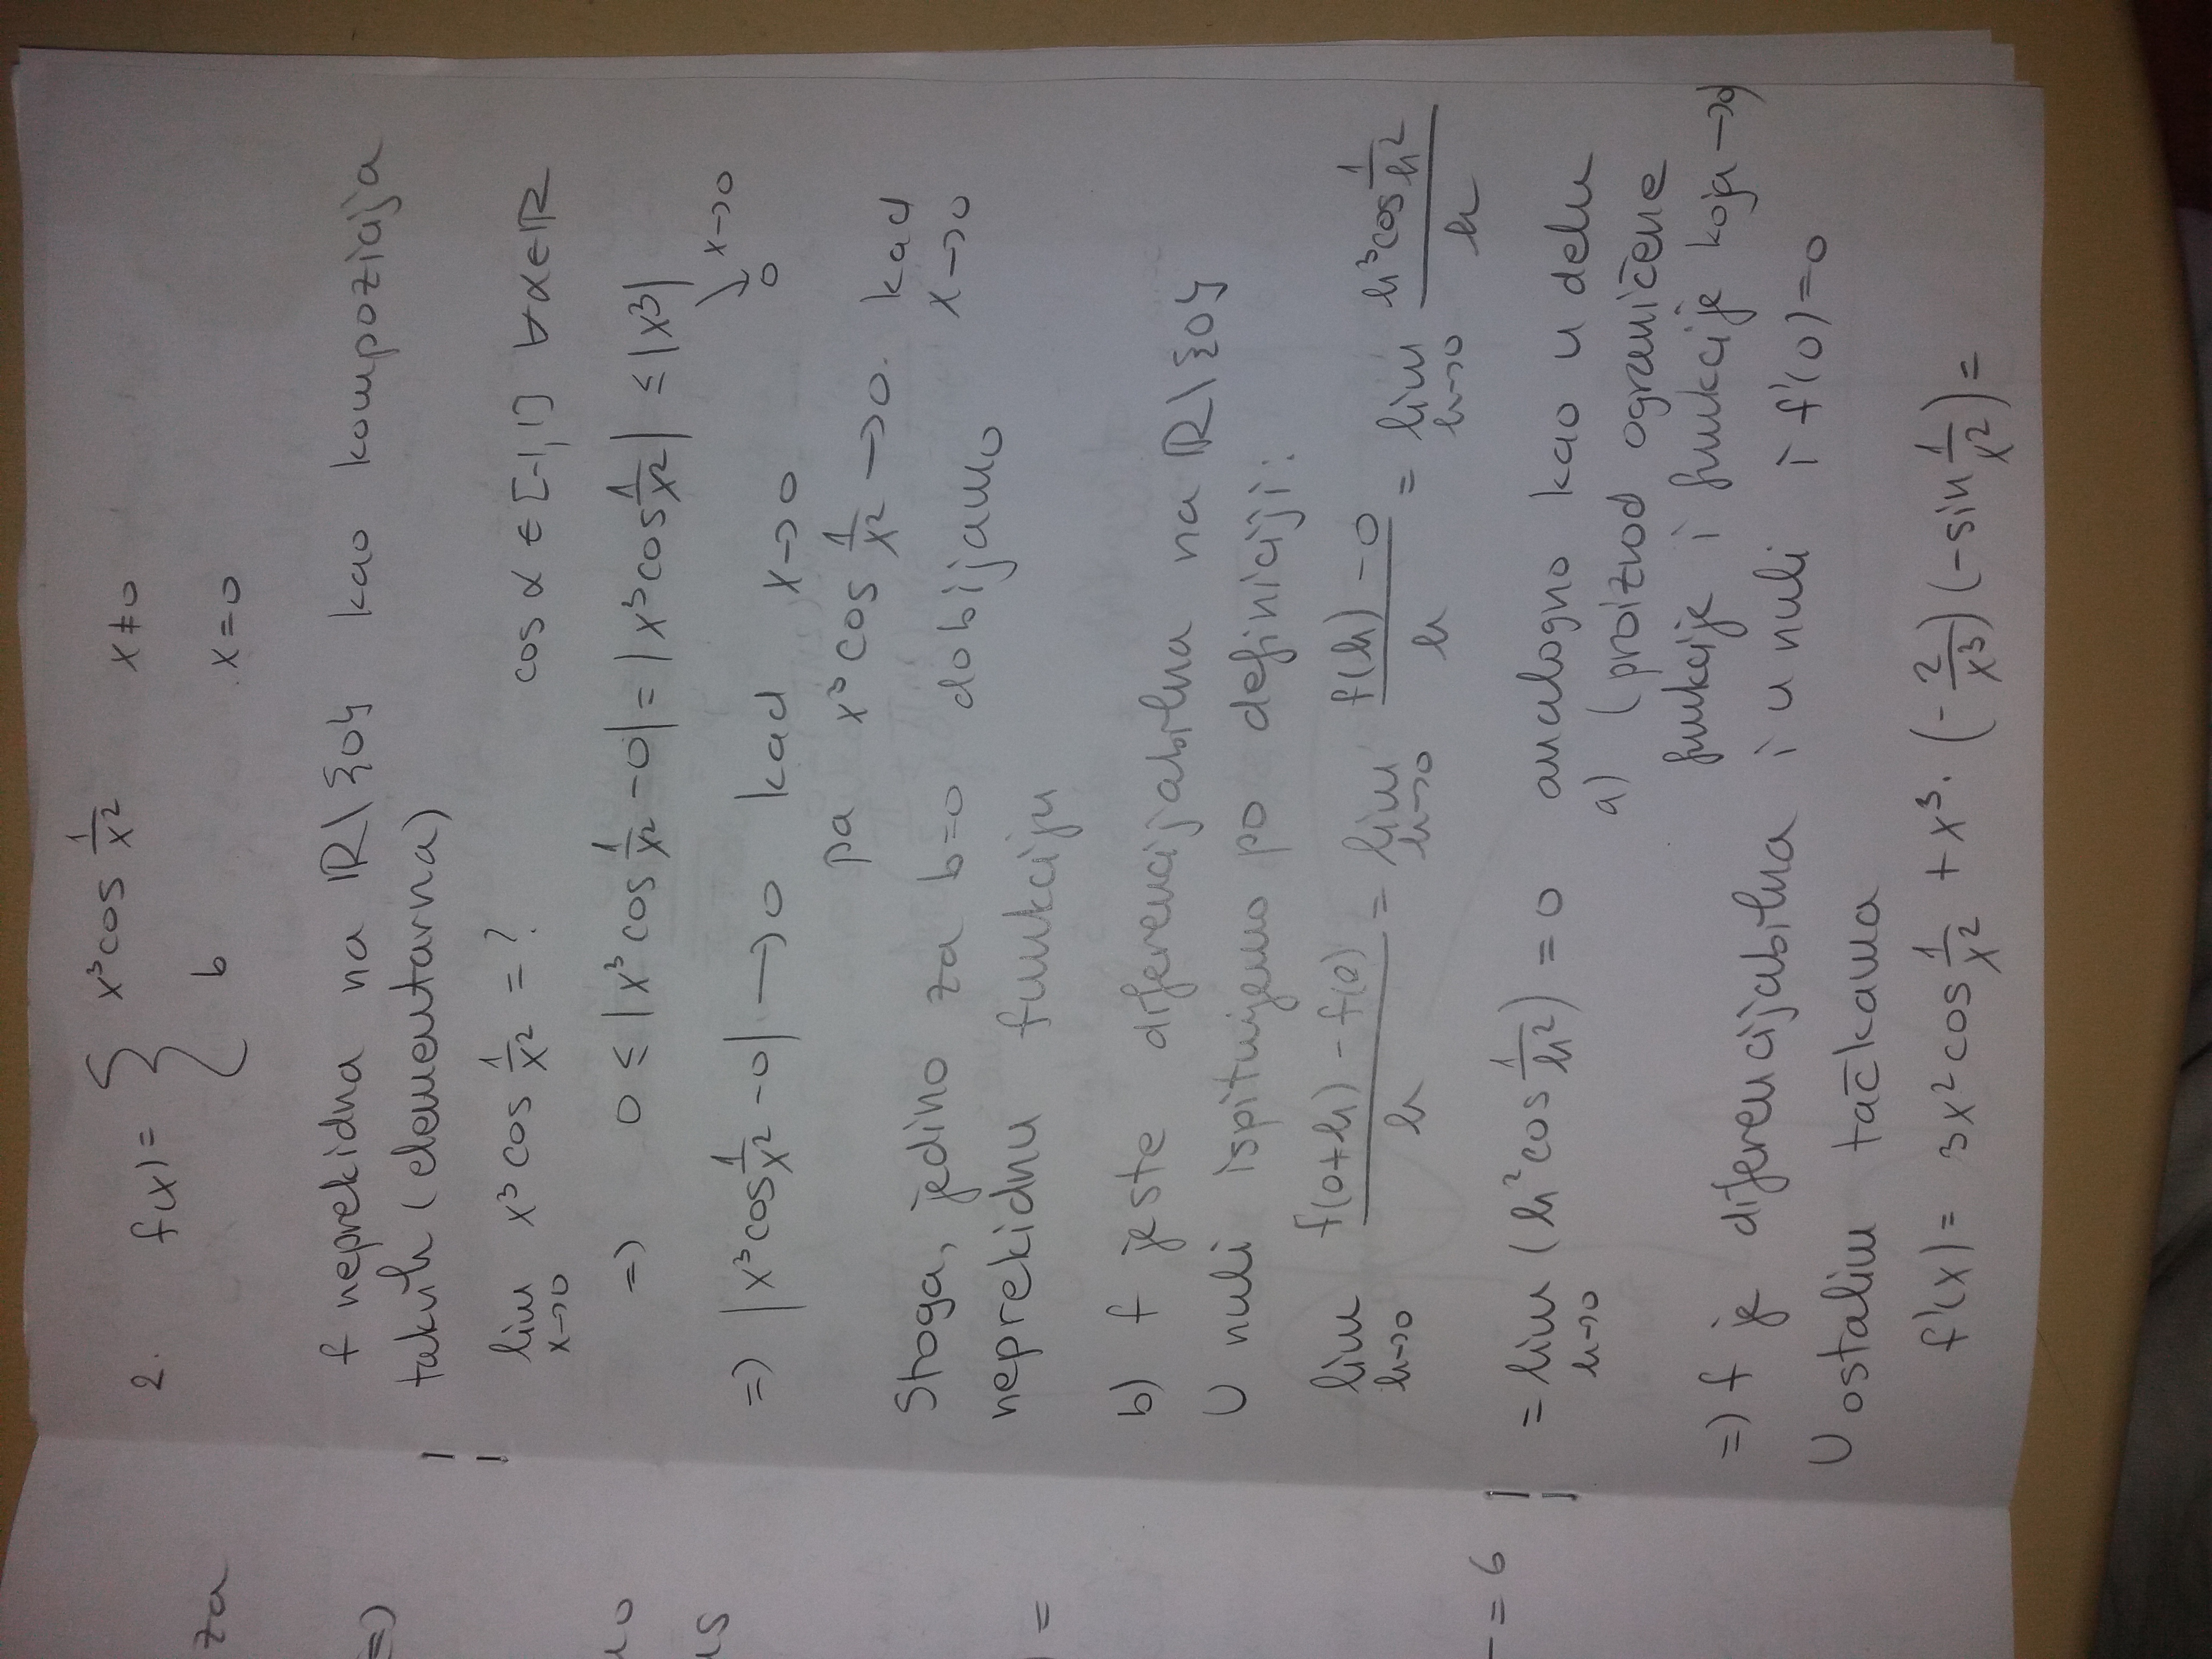 za
=>
us
=
= 6
2. f(x) = { x³cos 1/x² x≠0
b x=0
f neprekidna na ℝ\{0} kao kompozicija
takvih (elementarna)
lim x→0 x³ cos 1/x² = ? cos α ∈ [-1,1] ∀α∈ℝ
=> 0 ≤ |x³ cos 1/x² - 0| = |x³cos 1/x²| ≤ |x³|
↘ x→0
0
=> |x³cos 1/x² - 0| → 0 kad x→0
pa x³ cos 1/x² → 0. kad
x→0
Stoga, jedino za b=0 dobijamo
neprekidnu funkciju
b) f jeste diferencijabilna na ℝ\{0}
U nuli ispitujemo po definiciji:
lim h→0 (f(0+h) - f(0))/h = lim h→0 (f(h) - 0)/h = lim h→0 (h³cos 1/h²)/h
= lim h→0 (h²cos 1/h²) = 0 analogno kao u delu
a) (proizvod ograničene
funkcije i funkcije koja →0)
=> f je diferencijabilna i u nuli i f'(0)=0
U ostalim tačkama
f'(x) = 3x²cos 1/x² + x³· (-2/x³)(-sin 1/x²) =